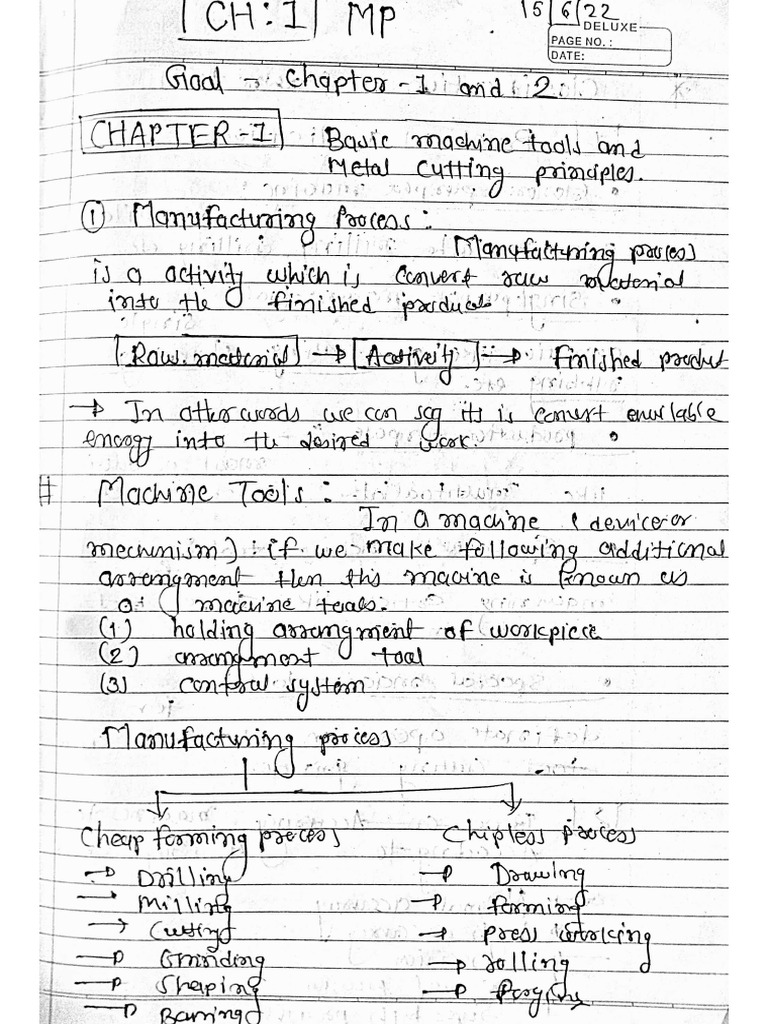 CH:1 MP 15/6/22
DELUXE
PAGE NO. :
DATE:
Goal - Chapter-1 and 2.
CHAPTER-1 Basic machine tools and
Metal Cutting principles.
① Manufacturing Process :
Manufacturing process
is a activity which is convert raw material
into the finished product
Raw material → Activity → finished product
→ In other words we can say its is convert
energy into the desired work.
# Machine Tools :
In a machine ( device or
mechnism) if we make following additional
arrangment then this macine is known as
of machine
(1) holding arrangment of workpiece
(2) arrangment tool
(3) control system
Manufacturing process
Cheap forming process Chipless process
→ Drilling → Drawing
→ Milling → forming
→ Cutting → press working
→ Grinding → rolling
→ Shaping →
→